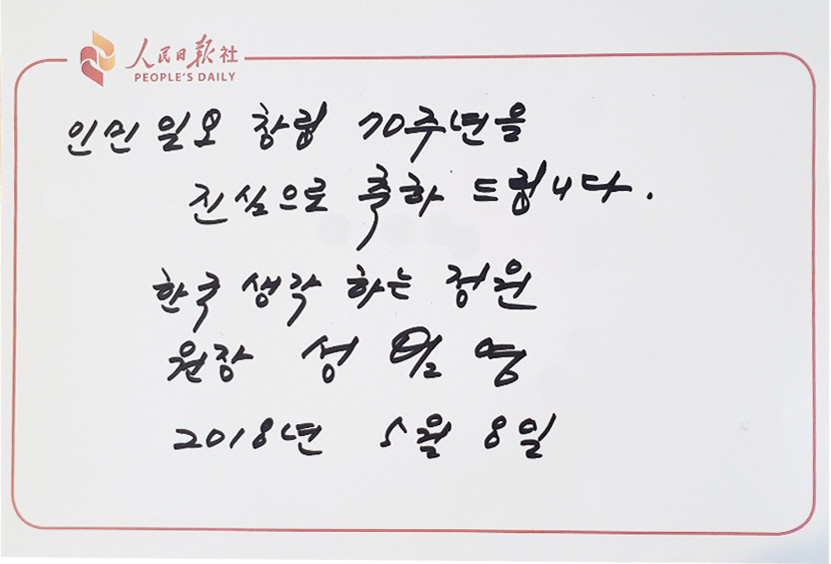 人民日报社
PEOPLE'S DAILY
인민일보 창립 70주년을
진심으로 축하 드립니다.
한국 생각 하는 정원
원장 성 범 영
2018년 5월 8일